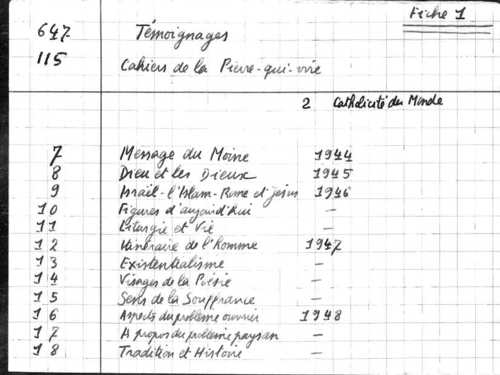 Fiche 1
647 Témoignages
115 Cahiers de la Pierre-qui-vire
2 Catholicité du Monde
7 Message du Moine 1944
8 Dieu et les Dieux 1945
9 Israël-l'Islam-Rome et Jésus 1946
10 Figures d'aujourd'hui -
11 Liturgie et Vie -
12 Itinéraire de l'homme 1947
13 Existentialisme -
14 Visages de la Poésie -
15 Sens de la Souffrance -
16 Aspects du problème ouvrier 1948
17 A propos du problème paysan -
18 Tradition et Histoire -